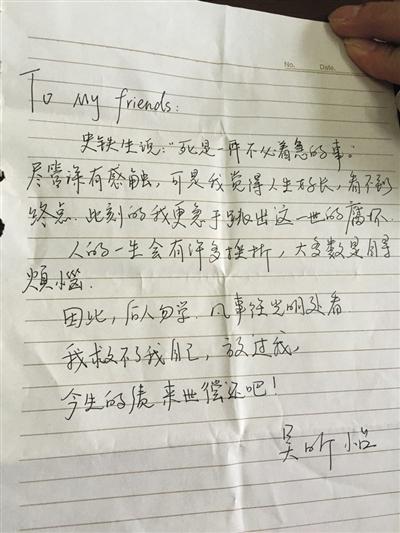 No.
Date.
To My friends:
史铁生说:"死是一件不必着急的事。
尽管深有感触,可是我觉得人生好长,看不到
终点.此刻的我更急于跳出这一世的腐坏.
人的一生会有许多挫折,大多数是自寻
烦惱.
因此,后人勿学.凡事往光明处看.
我救不了我自己,放过我,
今生的债来世偿还吧!
吴昕怡